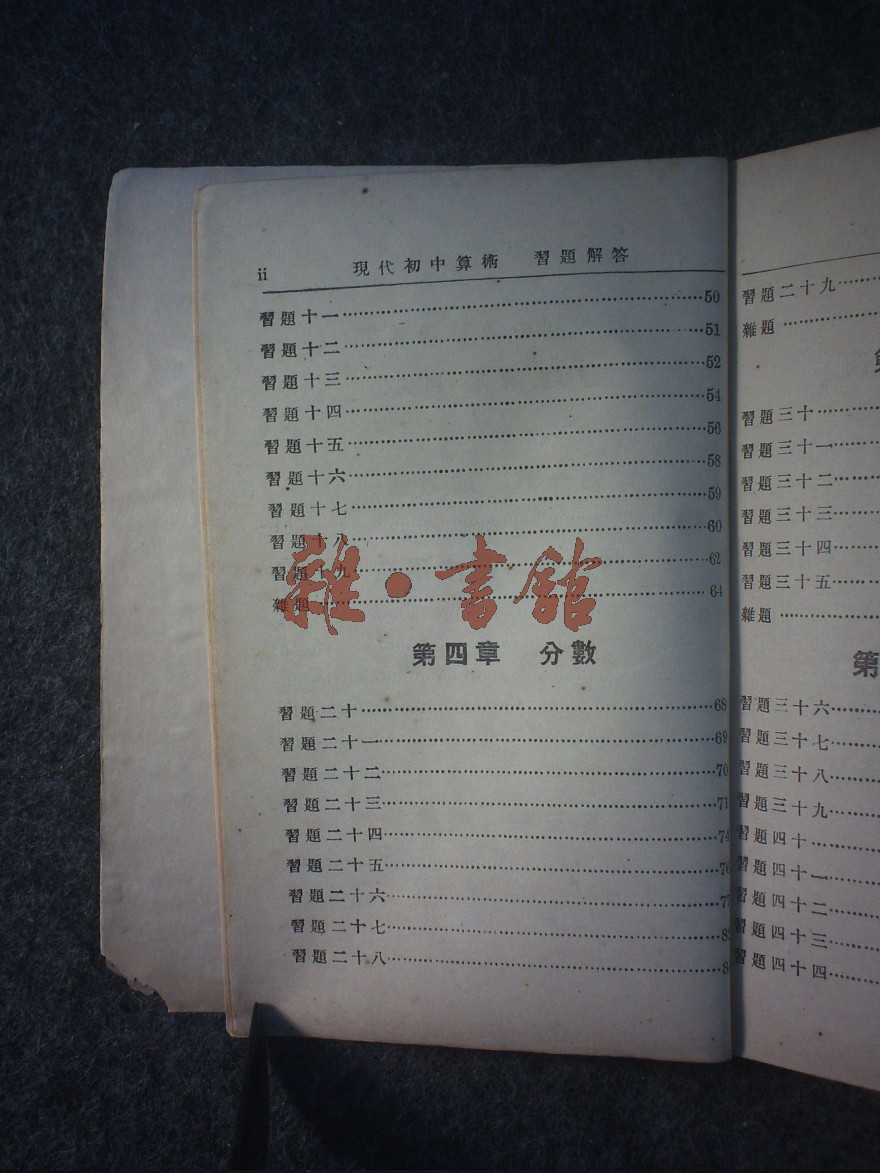 ii 現代初中算術 習題解答
習題十一……50
習題十二……51
習題十三……52
習題十四……54
習題十五……56
習題十六……58
習題十七……59
習題十八……60
習題十九……62
雜題……64
第四章 分數
習題二十……68
習題二十一……69
習題二十二……70
習題二十三……71
習題二十四……74
習題二十五……76
習題二十六……77
習題二十七……8
習題二十八……8
習題二十九……
雜題……
習題三十……
習題三十一……
習題三十二……
習題三十三……
習題三十四……
習題三十五……
雜題……
第
習題三十六……
習題三十七……
習題三十八……
習題三十九……
習題四十……
習題四十一……
習題四十二……
習題四十三……
習題四十四……
雜·書館